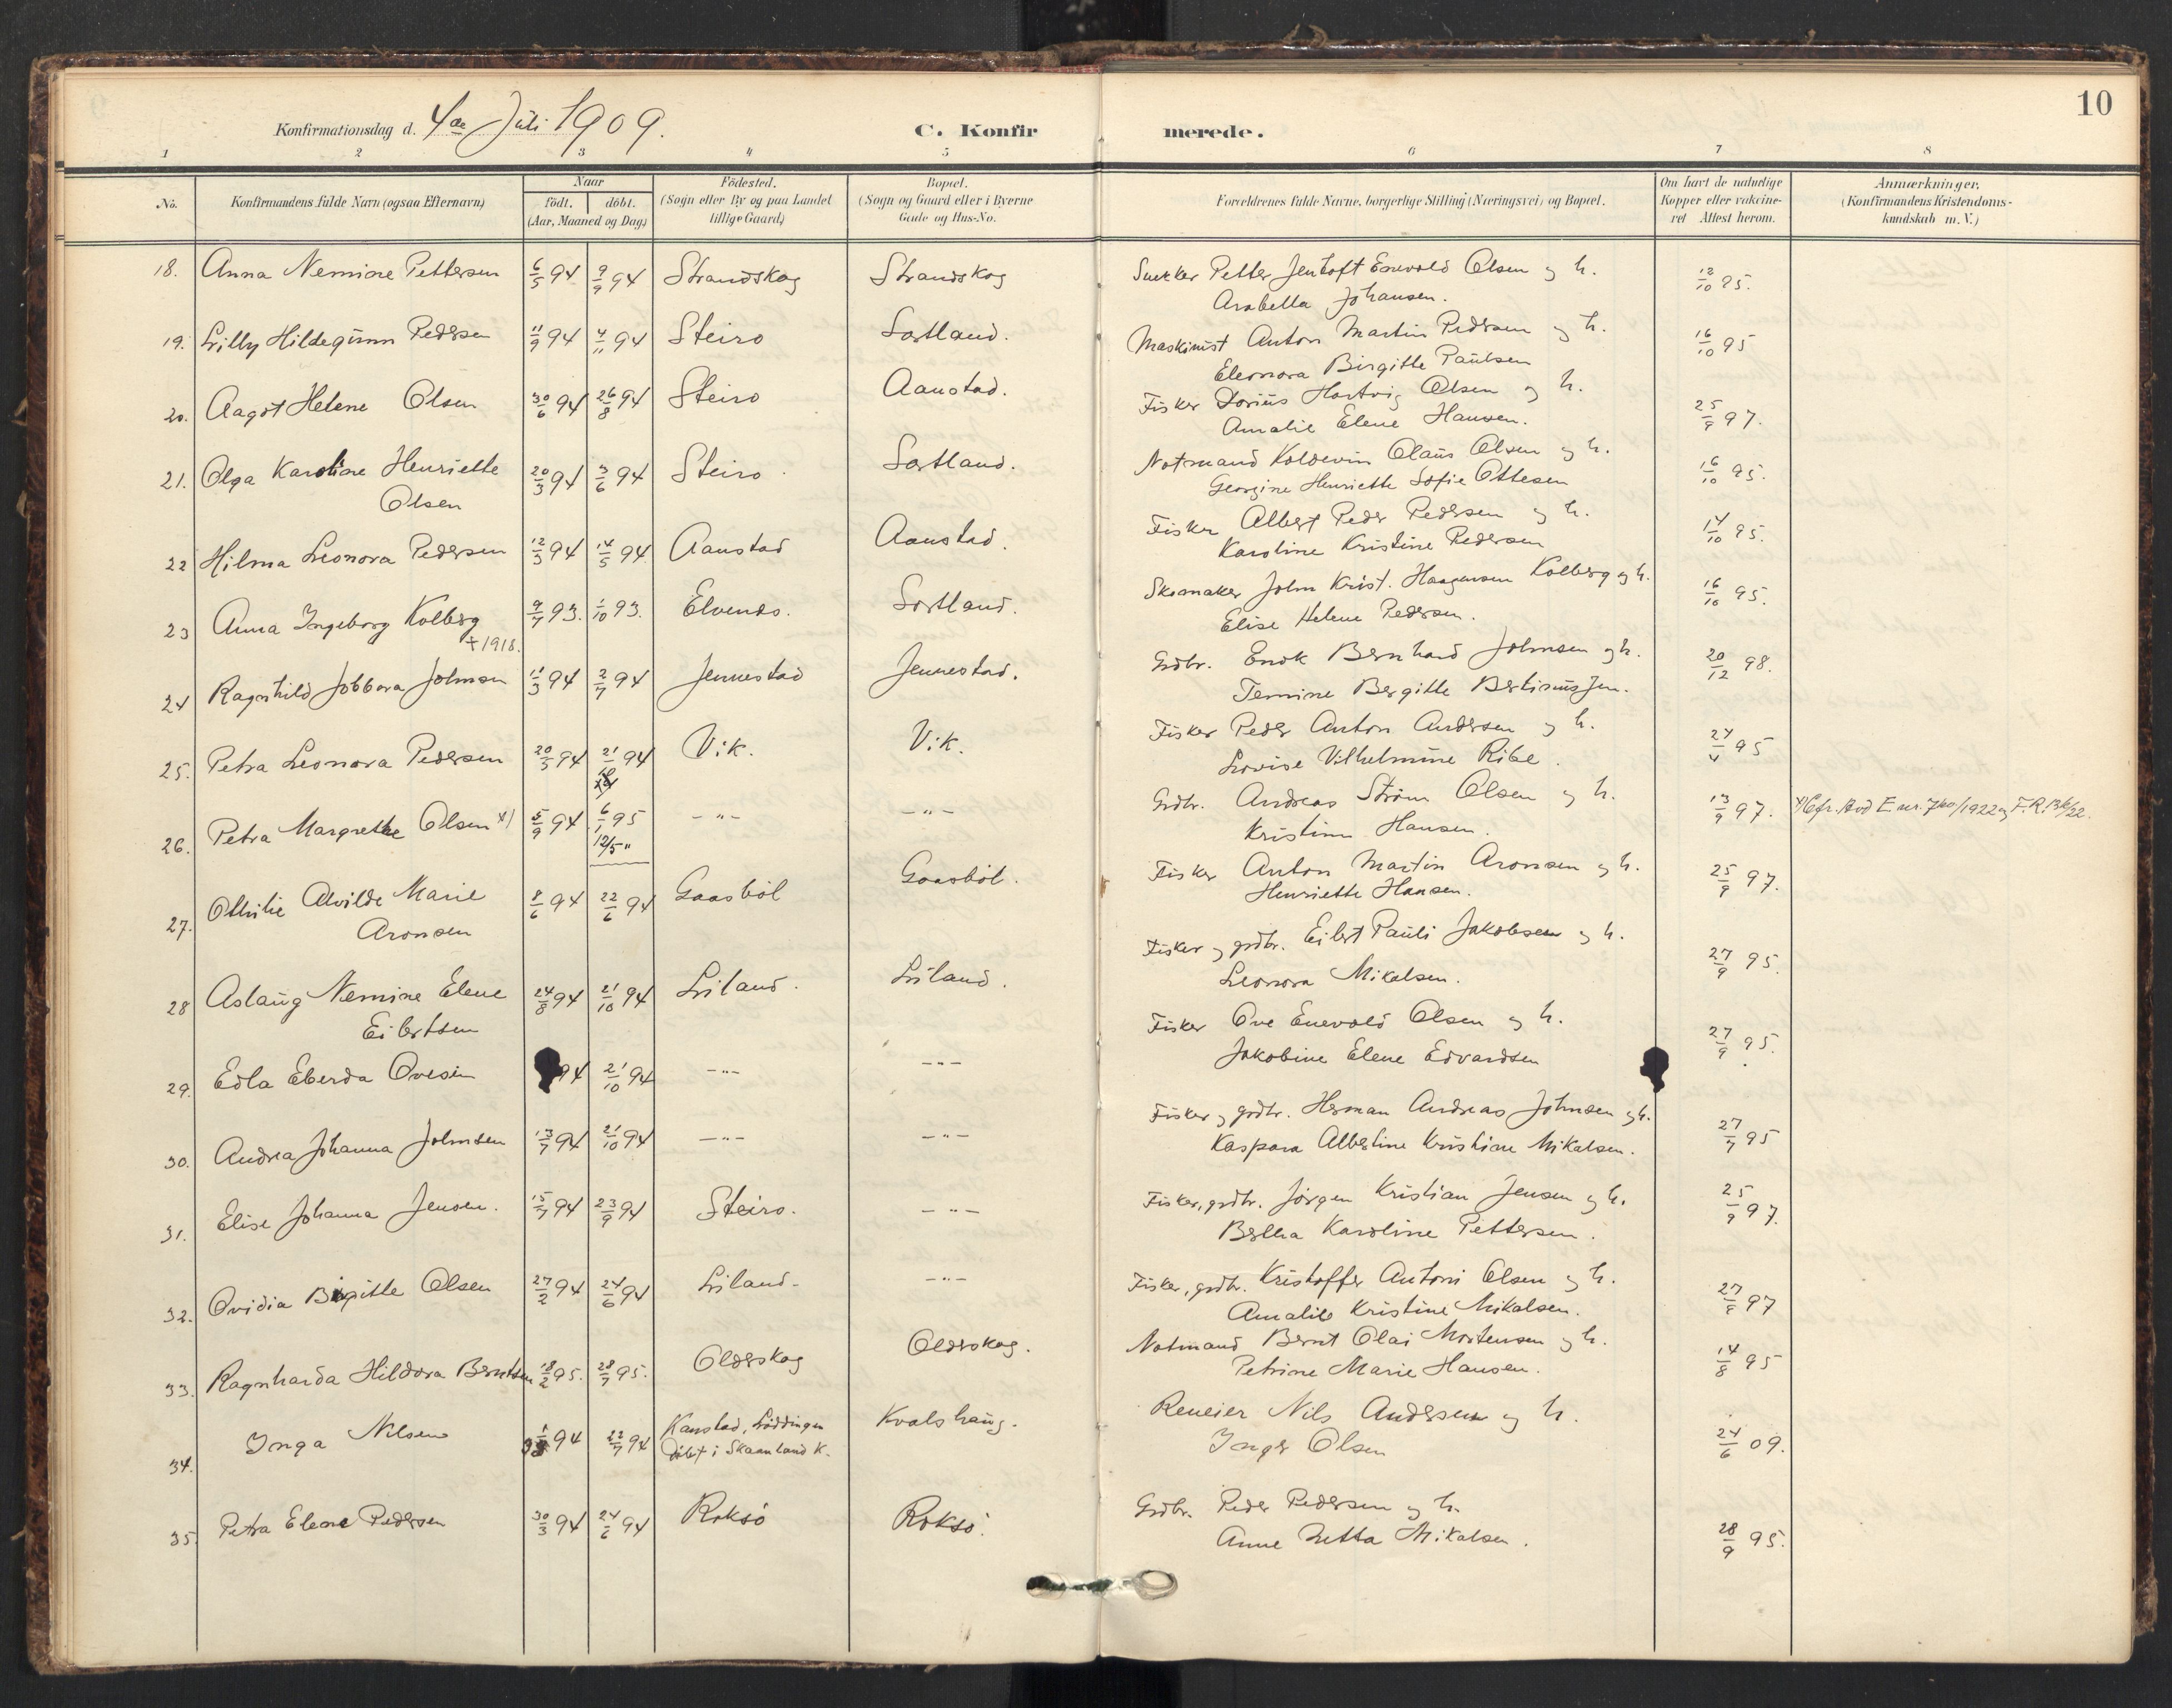 10
Konfirmationsdag d. 4de Juli 1909. C. Konfirmerede.
1 2 3 4 5 6 7 8
No. Konfirmandens fulde Navn (ogsaa Efternavn) Naar födt. döbt. (Aar, Maaned og Dag) Födested. (Sogn eller By og paa Landet tillige Gaard) Bopæl. (Sogn og Gaard eller i Byerne Gade og Hus-No. Forældrenes fulde Navne, borgerlige Stilling (Næringsvei) og Bopæl. Om havt de naturlige Kopper eller vaccineret Attest herom. Anmærkninger. (Konfirmandens Kristendomskundskab m. V.)
18. Anna Nemine Pettersen 6/5 94 9/9 94 Strandskog Strandskog Snekker Petter Jentoft Enevold Olsen og h. 12/10 95.
Arabella Johansen.
19. Lilly Hildegunn Pedersen 11/9 94 4/11 94 Steiro Sortland. Maskinist Anton Martin Pedersen og h. 16/10 95
Eleonora Birgitte Paulsen
20. Aagot Helene Olsen 30/6 94 26/8 94 Steiro Aanstad. Fisker Dorius Hartvig Olsen og h. 25/9 97.
Amalie Elene Hansen.
21. Olga Karoline Henriette 20/3 94 3/6 94 Steiro Sortland. Notmand Koldevin Olaus Olsen og h. 16/10 95.
Olsen Georgine Henriette Sofie Ottesen
22 Hilma Leonora Pedersen 12/3 94 14/5 94 Aanstad Aanstad. Fisker Albert Peder Pedersen og h. 14/10 95.
Karoline Kristine Pedersen
23 Anna Ingeborg Kolberg 9/7 93. 1/10 93. Elvenes. Sortland. Skomaker John Krist. Haagensen Kolberg og h. 16/10 95.
+1918. Elise Helene Pedersen.
24 Ragnhild Jobbora Johnsen 11/3 94 2/7 94 Jennestad Jennestad. Grdbr. Enok Bernhard Johnsen og h. 20/12 98.
Temine Bergitte Bertinusjen.
25. Petra Leonora Pedersen 20/5 94 21/10 94 Vik. Vik. Fisker Peder Anton Andersen og h. 24/4 95
Lovise Vilhelmine Ribe.
26. Petra Margrethe Olsen x) 5/9 94 6/1 95 - " - - " - Grdbr. Andreas Ström Olsen og h. 13/9 97.
12/5 " Kristine Hansen.
27. Othilie Alvilde Marie 8/6 94 22/6 94 Gaasböl Gaasböl. Fisker Anton Martin Aronsen og h. 25/9 97.
Aronsen Henriette Hansen.
28 Aslaug Nemine Elene 24/8 94 21/10 94 Liland. Liland. Fisker og grdbr. Eilert Pauli Jakobsen og h. 27/9 95.
Eilertsen Leonora Mikalsen.
29. Edla Eberda Ovesen 94 21/10 94 - " - - " - Fisker Ove Enevold Olsen og h. 27/9 95.
Jakobine Elene Edvardsen
30. Andrea Johanna Johnsen 13/7 94 21/10 94 - " - - " - Fisker og grdbr. Herman Andreas Johnsen og h. 27/9 95
Kaspara Albertine Kristiane Mikalsen.
31. Elise Johanna Jensen. 15/7 94 23/9 94 Steiro. - " - Fisker, grdbr. Jörgen Kristian Jensen og h. 25/9 97.
Bertha Karoline Pettersen.
32. Ovidia Birgitte Olsen 27/2 94 24/6 94 Liland. - " - Fisker, grdbr. Kristoffer Antoni Olsen og h. 27/9 97
Amalie Kristine Mikalsen.
33. Ragnharda Hildora Berntsen 18/2 95. 28/7 95. Olderskog Olderskog. Notmand Bernt Olai Mortensen og h. 14/8 95
Petrine Marie Hansen.
34. Inga Nilsen 94 22/7 94 Kanstad, Löddingen Kvalshaug. Reneier Nils Andersen og h. 24/6 09.
Döbt i Skaanland K. Inger Olsen
35. Petra Elene Pedersen 30/3 94 24/6 94 Roksö Roksö. Grdbr. Peder Pedersen og h. 28/9 95.
Anne Zetta Mikalsen.